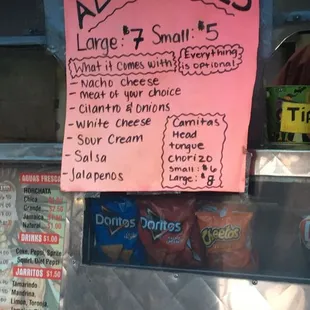 Large: $7 Small: $5
What it comes with
Everything
is optional
- Nacho Cheese
- meat of your choice
- Cilantro & onions
- White Cheese
- Sour Cream
- Salsa
- Jalapenos
Carnitas
Head
tongue
chorizo
Small: $6
Large: $8
Tip
AGUAS FRESCAS
HORCHATA
Chica
Grande
Jamaica
Natural
DRINKS $1.00
Coke, Pepsi, Sprite
Squirt, Diet Pepsi
JARRITOS $1.50
Tamarindo
Mandrina,
Limon, Toronja,
Doritos
Doritos
Cheetos